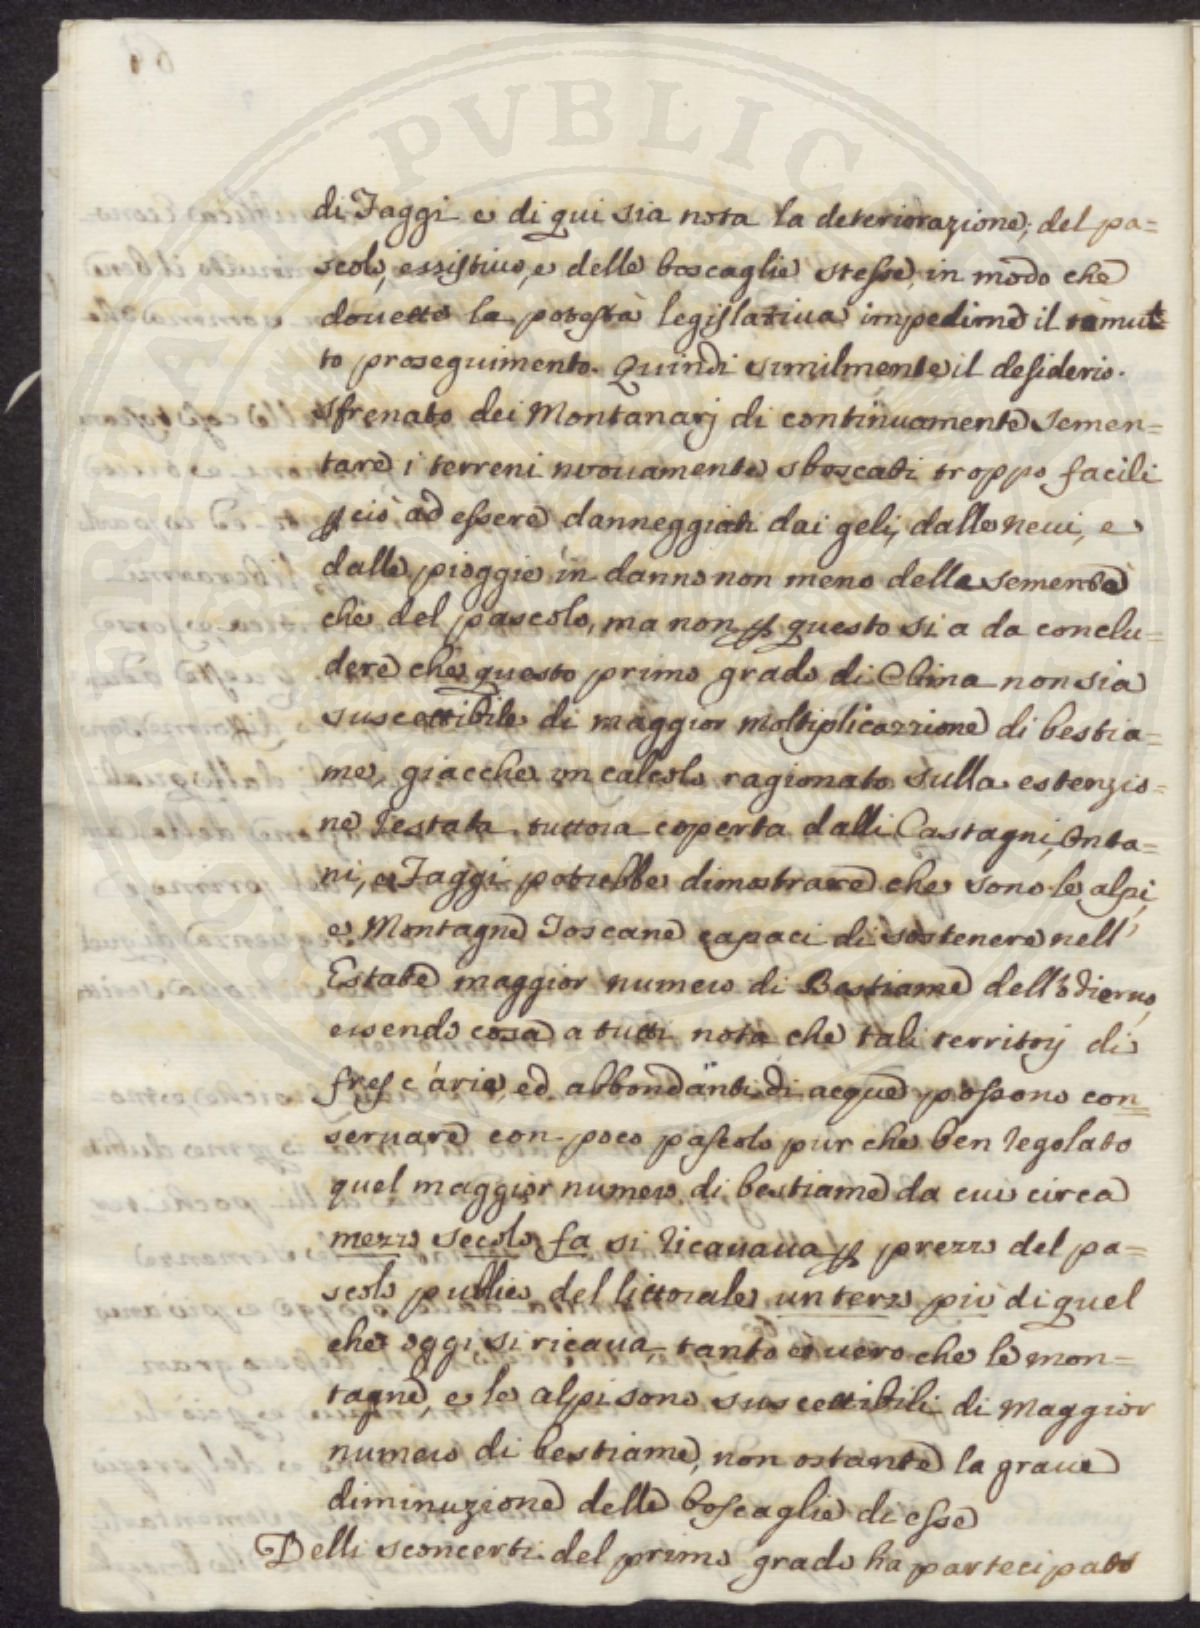 di Faggi e di qui sia nota la deteriorazione, del pa=
scolo, essistivo, e delle boscaglie stesse, in modo che
dovette la potestà legislativa impedirne il
to proseguimento. Quindi similmente il desiderio
sfrenato dei Montanarj di continuamente semen=
tare i terreni nuovamente sboscati troppo facili
ꝑ ciò ad essere danneggiati dai geli, dalle nevi, e
dalle pioggie in danno non meno della sementa
che del pascolo, ma non ꝑ questo si a da conclu=
dere che questo primo grado di Clima non sia
suscettibile di maggior moltiplicazzione di bestia=
me, giacche un calcolo ragionato sulla estenzio=
ne restata tuttora coperta dalli Castagni, Onta=
ni, e Faggi potrebbe dimostrare che sono le alpi,
e Montagne Toscane capaci di sostenere nell'
Estate maggior numero di Bestiame dell'odierno,
essendo cosa a tutti nota che tali territorj di
fresc'aria, ed abbondanti di acque possono con=
servare con poco pascolo pur che ben regolato
quel maggior numero di bestiame da cui circa
mezzo secolo fa si ricavava ꝑ prezzo del pa=
scolo publico del littorale un terzo più di quel
che oggi si ricava, tanto è vero che le mon=
tagne, e le alpi sono suscettibili di Maggior
numero di bestiame, non ostante la grave
diminuzione delle boscaglie di esse
Delli sconcerti del primo grado ha partecipato